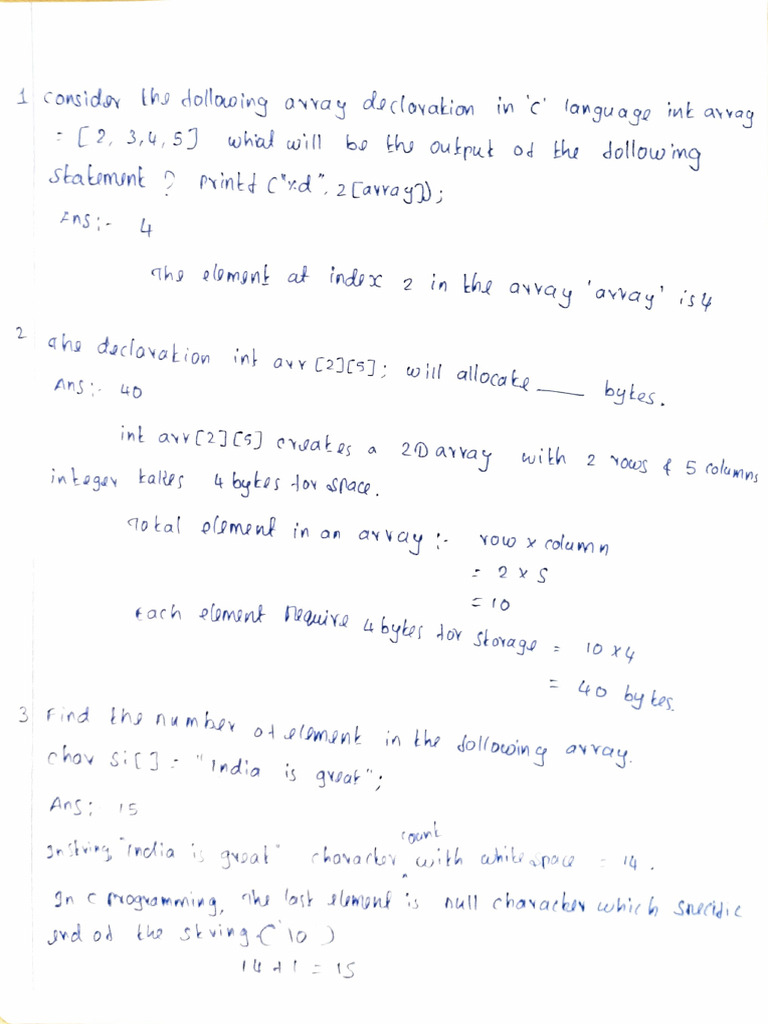 1 consider the following array declaration in 'c' language int array
= [2, 3, 4, 5] what will be the output of the following
statement ? printf ("%d", 2[array]);
Ans:- 4
The element at index 2 in the array 'array' is 4
2 The declaration int arr [2][5]; will allocate ___ bytes.
Ans:- 40
int arr[2][5] creates a 2D array with 2 rows & 5 columns
integer takes 4 bytes for space.
Total element in an array :- row x column
= 2 x 5
= 10
Each element require 4 bytes for storage = 10 x 4
= 40 bytes.
3 Find the number of element in the following array.
char si[] = "India is great";
Ans: 15
In string, "India is great" character count with white space = 14.
In c programming, The last element is null character which specific
end of the string ('\0)
14 + 1 = 15